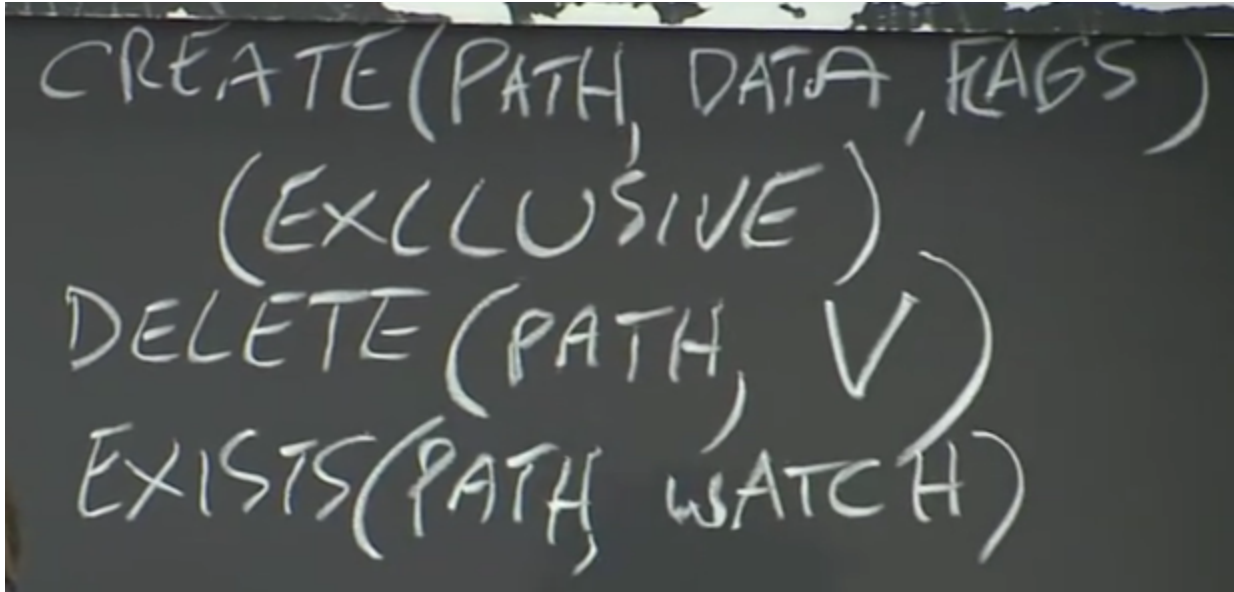 CREATE(PATH, DATA, FLAGS)
(EXCLUSIVE)
DELETE(PATH, V)
EXISTS(PATH, WATCH)